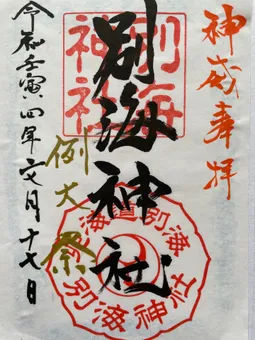 奉拝
別海神社
別海
神社
例大祭
北海道別海
別海神社
令和壬寅四年
月十七日